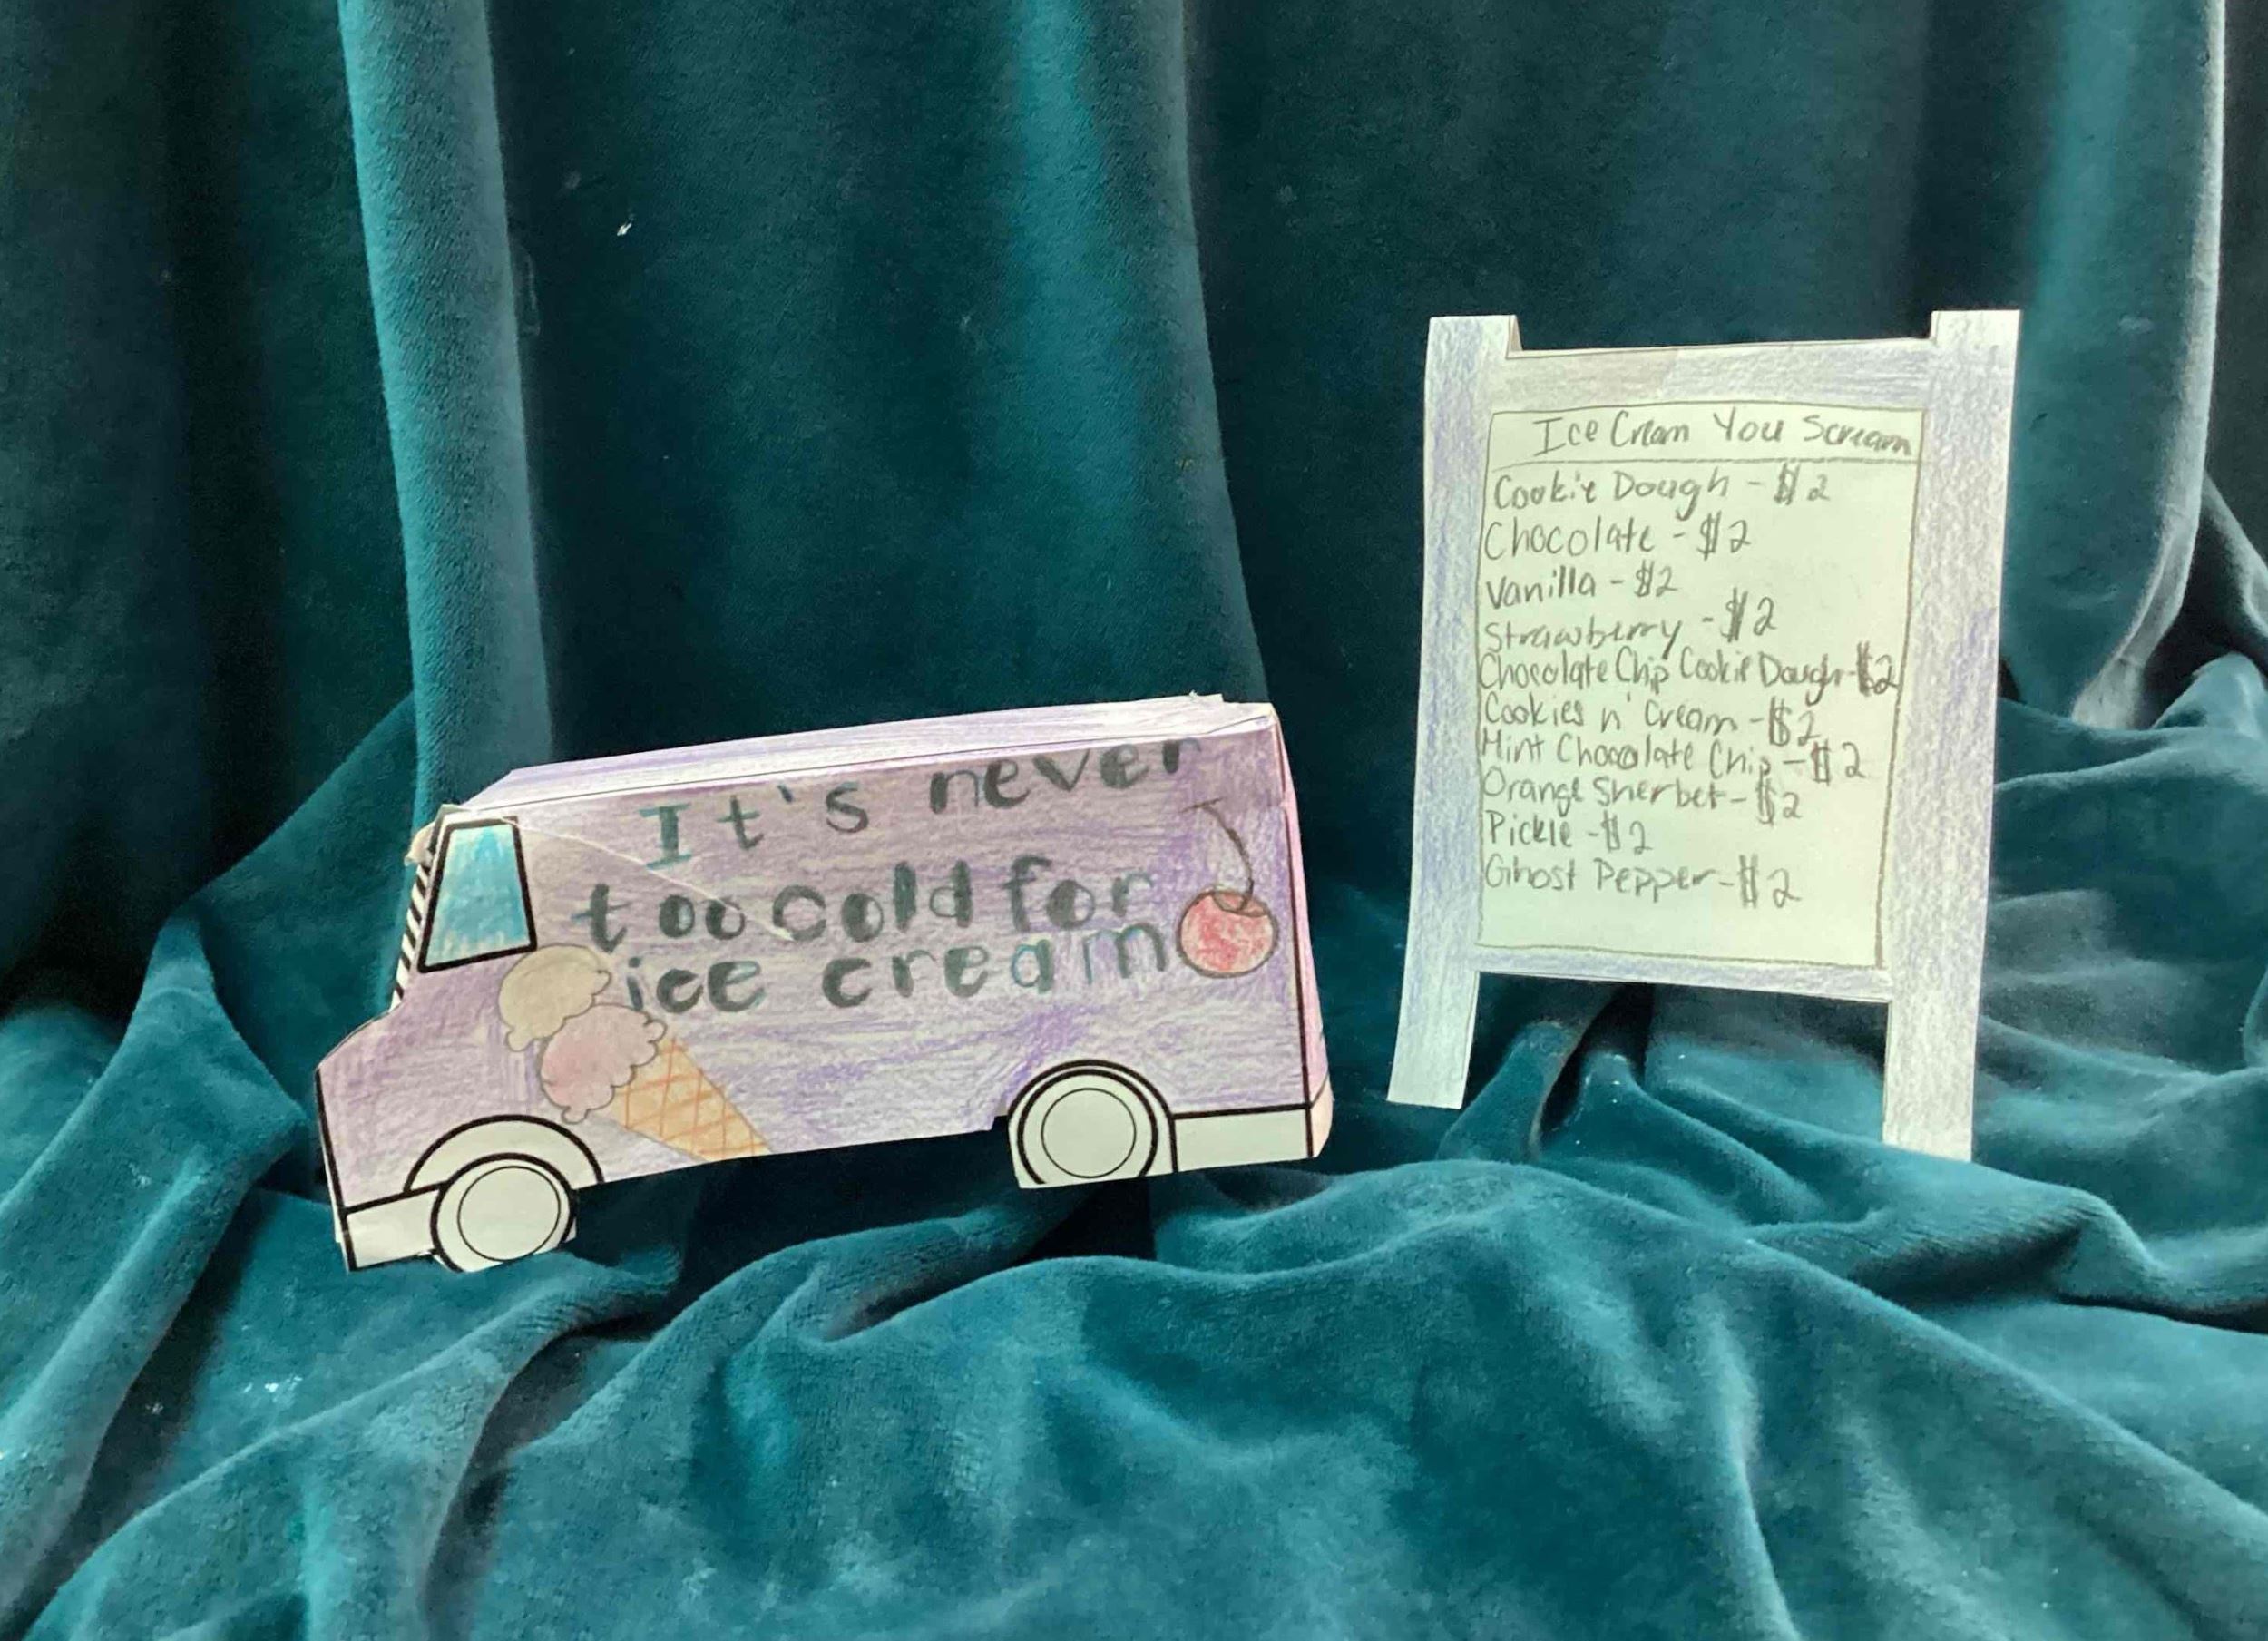 It's never
too cold for
ice cream
Ice Cream You Scream
Cookie Dough - $2
Chocolate - $2
Vanilla - $2
Strawberry - $2
Chocolate Chip Cookie Dough - $2
Cookies n' Cream - $2
Mint Chocolate Chip - $2
Orange Sherbet - $2
Pickle - $2
Ghost Pepper - $2